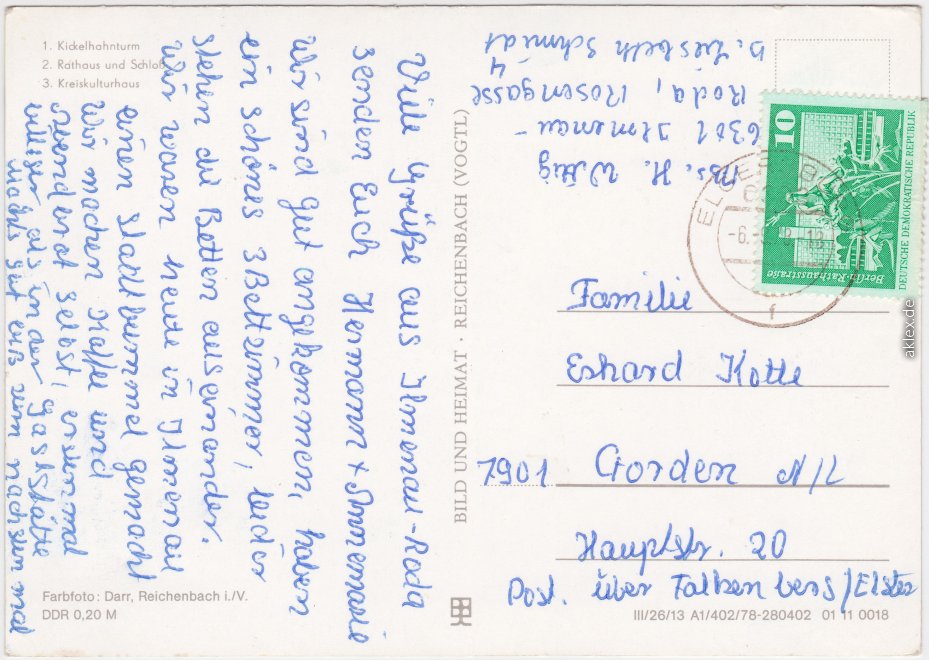 1. Kickelhahnturm
2. Rathaus und Schloß
3. Kreiskulturhaus
Viele Grüße aus Ilmenau-Roda
senden Euch Hermann + Annemarie
Wir sind gut angekommen, haben
ein schönes 3 Bettzimmer, leider
stehen die Betten auseinander.
Wir waren heute in Ilmenau
einen Stadtbummel gemacht
Wir machen Kaffee und
Abendbrot selbst, erstenmal
billiger als in der Gaststätte
Machts gut bis zum nächsten mal
Farbfoto: Darr, Reichenbach i./V.
DDR 0,20 M
BILD UND HEIMAT · REICHENBACH (VOGTL)
Abs. H. Wittig
6301 Ilmenau-
Roda, Rosengasse
4
b. Liesbeth Schmidt
10
Berlin-Rathausstraße
DEUTSCHE DEMOKRATISCHE REPUBLIK
-6.
f
Familie
Erhard Kotte
7901 Gorden N/L
Hauptstr. 20
Post. über Falkenberg/Elster
III/26/13 A1/402/78-280402 01 11 0018
aklex.de